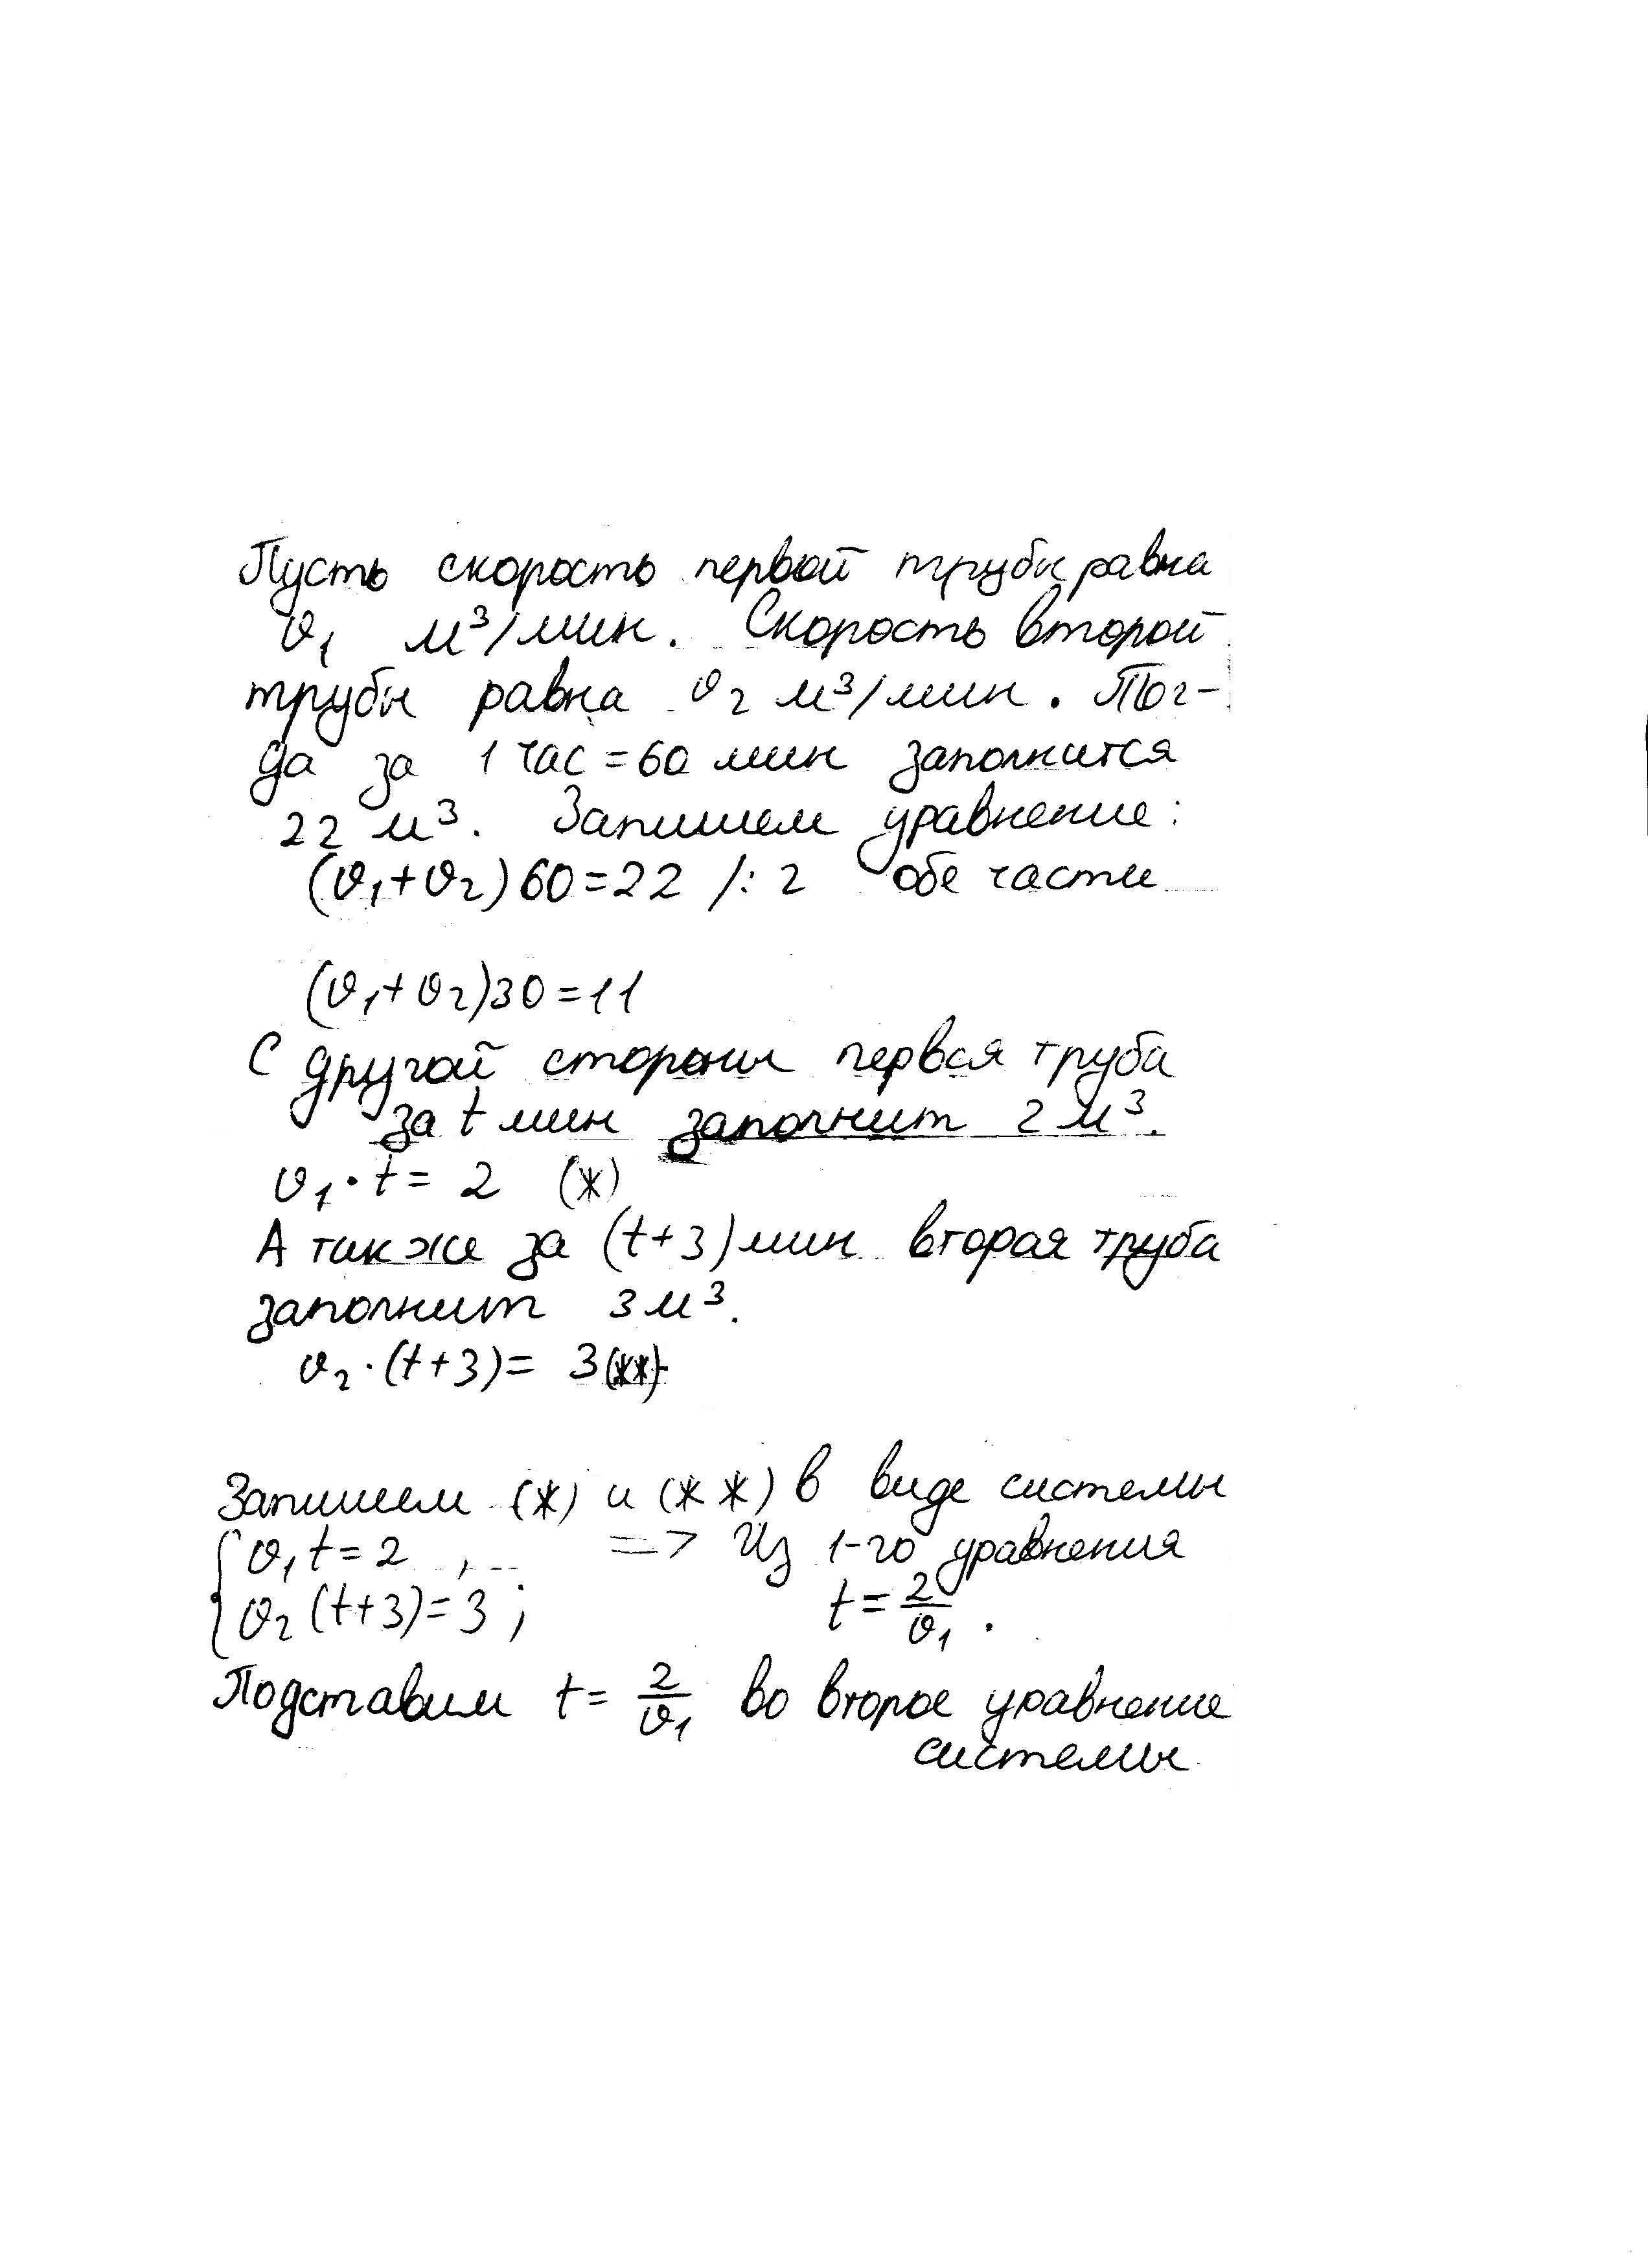 Пусть скорость первой трубы равна
v₁ м³/мин. Скорость второй
трубы равна v₂ м³/мин. Тог-
да за 1 час = 60 мин заполнится
22 м³. Запишем уравнение:
(v₁+v₂)60=22 /:2 обе части
(v₁+v₂)30=11
С другой стороны первая труба
за t мин заполнит 2 м³.
v₁·t = 2 (*)
А также за (t+3) мин вторая труба
заполнит 3 м³.
v₂·(t+3) = 3 (**)
Запишем (*) и (**) в виде системы
{ v₁t=2, => Из 1-го уравнения
{ v₂(t+3)=3; t=2/v₁.
Подставим t=2/v₁ во второе уравнение
системы